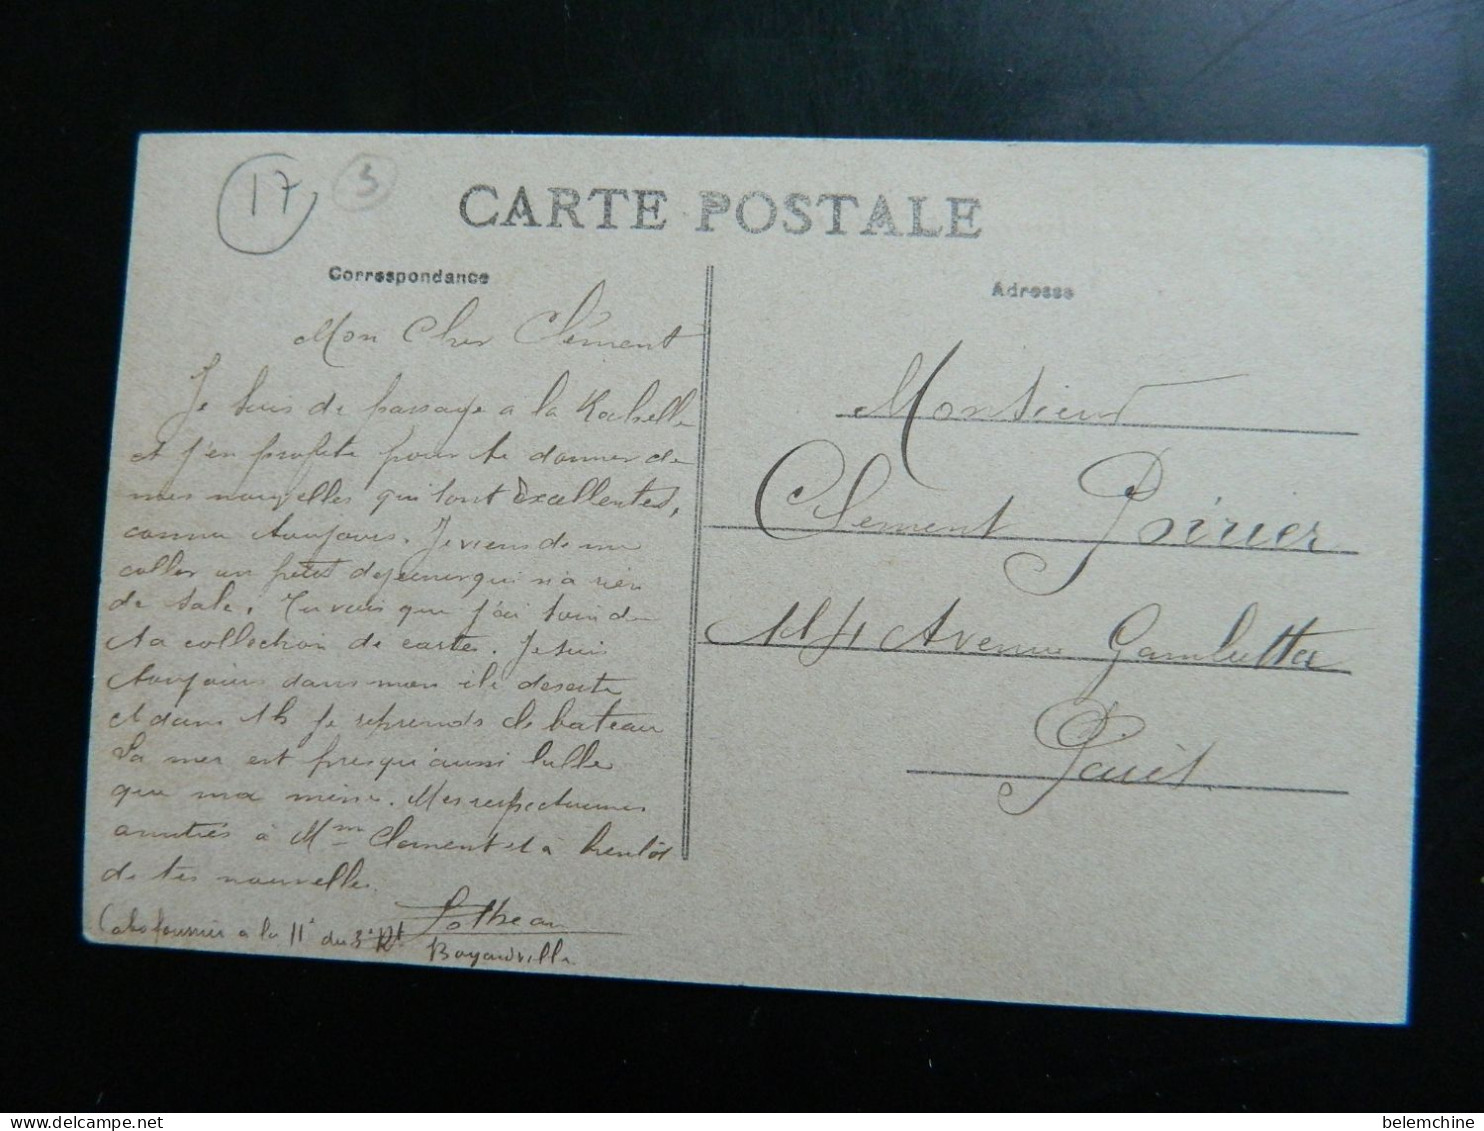 17 3
CARTE POSTALE
Correspondance
Adresse
Mon Cher Clément
Je suis de passage à la Rochelle
et j'en profite pour te donner de
mes nouvelles qui sont Excellentes,
comme toujours. Je viens de me
coller un petit dejeuner qui n'a rien
de sale. Tu vois que j'ai soin de
ta collection de carte. Je suis
toujours dans mon ile deserte
et dans 1h je reprends le bateau
La mer est presqu'aussi belle
que ma mine. Mes respectueuses
amitiés à Mme Clement et à bientôt
de tes nouvelles.
Cabo fourrier a la 11e du 3e Rt
Boyardville
Monsieur
Clement Poirier
Avenue Gambetta
belemchine